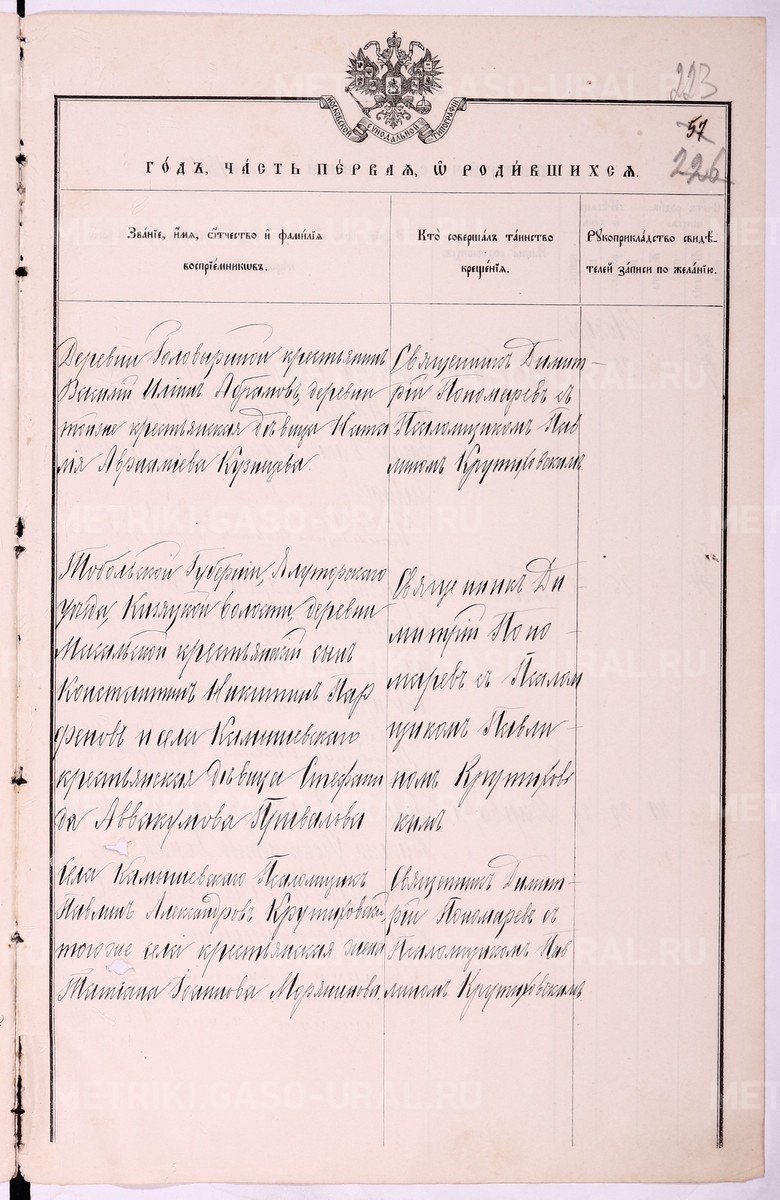 223
57
226
МОСКОВСКОЙ СѴНОДАЛЬНОЙ ТИПОГРАФІИ
ГО́ДЪ, ЧА́СТЬ ПЕ́РВАЯ, Ѡ҆ РОДИ́ВШИХСЯ.
Зва́нїе, и҆́мя, ѻ҆́тчество и҆ фами́лїя
воспрїе́мниковъ.
Кто̀ соверша́лъ та́инство
креще́нїя.
Рꙋкоприкла́дство свидѣ́-
телей за́писи по жела́нїю.
Деревни Головыриной крестьянинъ
Василій Илiинъ Абрамовъ, деревни
тойже крестьянская дѣвица Ната
лія Авраамiева Кузнецева.
Священникъ Димит-
рій Пономаревъ съ
Псаломщикомъ Пав
линомъ Крутиховскимъ
Тобольской Губерніи, Ялуторскаго
уѣзда, Кизяцкой волости, деревни
крестьянскій сынъ
Константинъ Никитинъ Пар
феновъ и села Камышевскаго
крестьянская дѣвица Стефани
да Аввакумова Привалова
Священникъ Ди-
митрій Поно-
маревъ съ Псалом
щикомъ Павли-
номъ Крутиховс
кимъ
села Камышевскаго Псаломщикъ
Павлинъ Александровъ Крутиховскій,
тогоже села крестьянская жена
Татіана Іоаннова Морянинова.
Священникъ Димит-
рій Пономаревъ съ
Псаломщикомъ Пав
линомъ Крутиховскимъ
METRIKI.GASO-URAL.RU